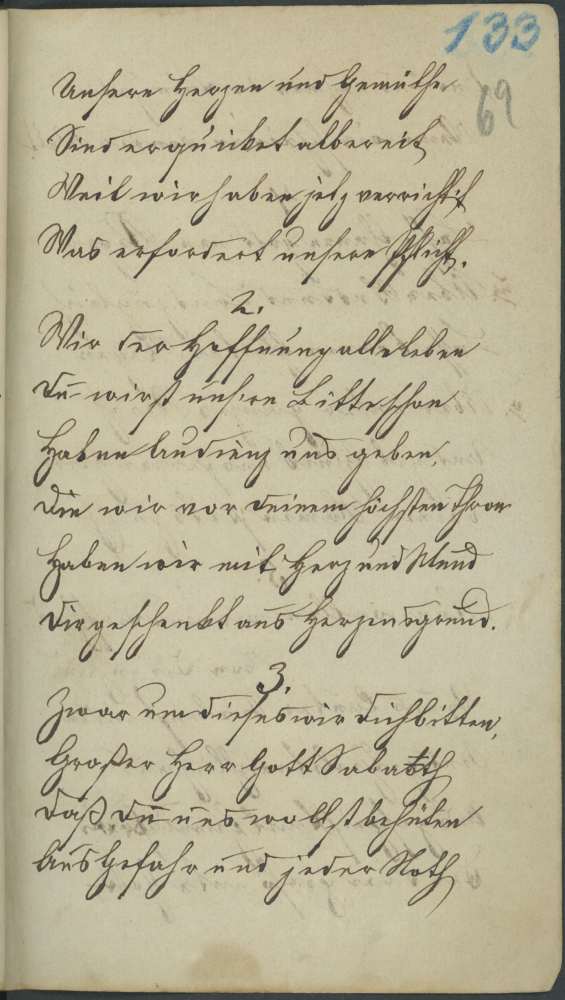 133
69
Unsere Herzen und Gemüthe
Sind erquicket albereit
Weil wir haben jetz verricht't
Was erfordert unsere Pflicht.
2.
Wir der Hoffnung alle leben
Du wirst unsere Bitte schon
Haben Audienz uns geben,
Die wir vor deinem höchsten Thron
Haben wir mit Herz und Mund
Dir geschenkt aus Herzensgrund.
3.
Zwar um dieses wir dich bitten,
Großer Herr Gott Sabaoth
Daß du uns wollst behüten
Aus Gefahr und jeder Noth